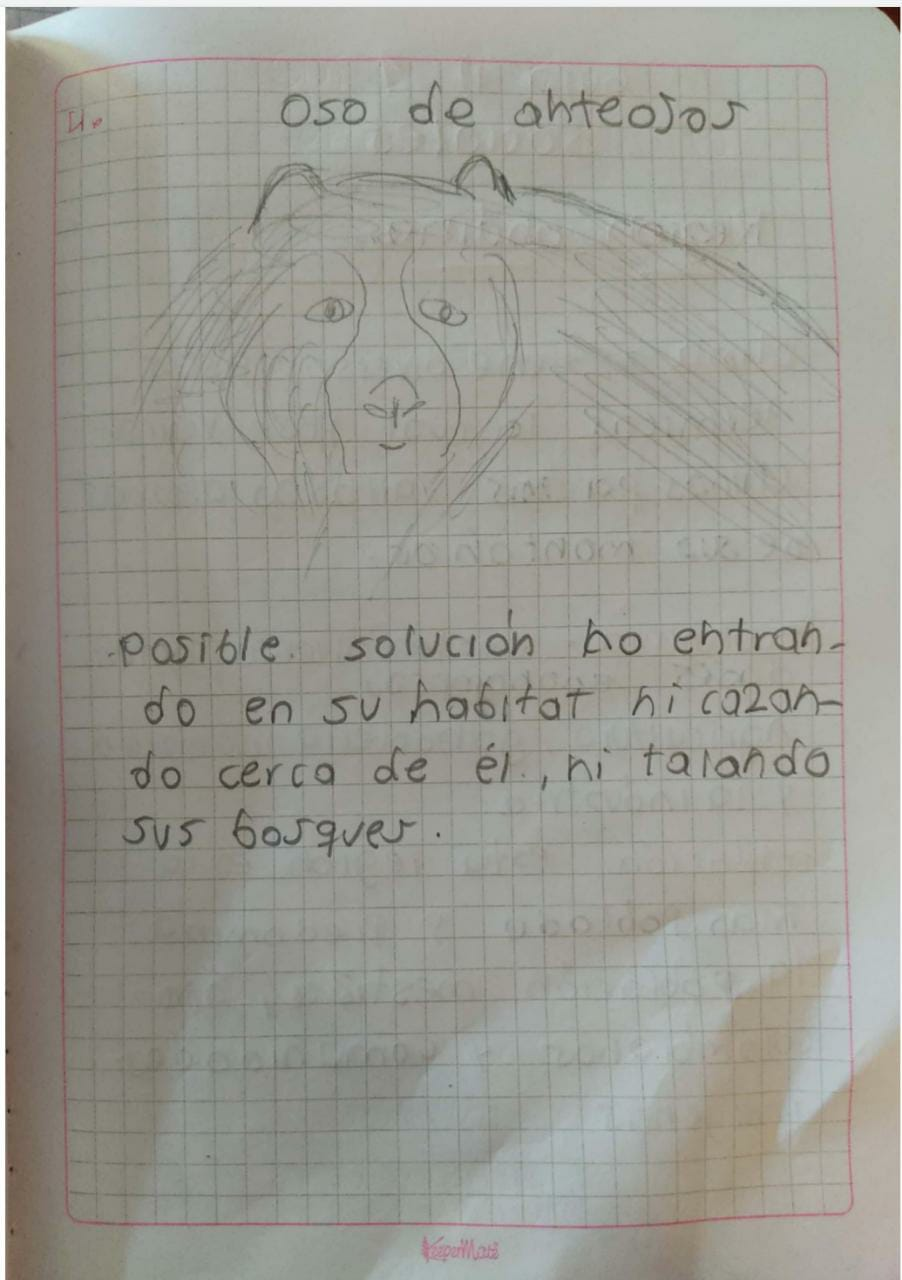 4.
Oso de anteojos
Posible solución no entran-
do en su habitat ni cazan-
do cerca de él, ni talando
sus bosques.
KeeperMate